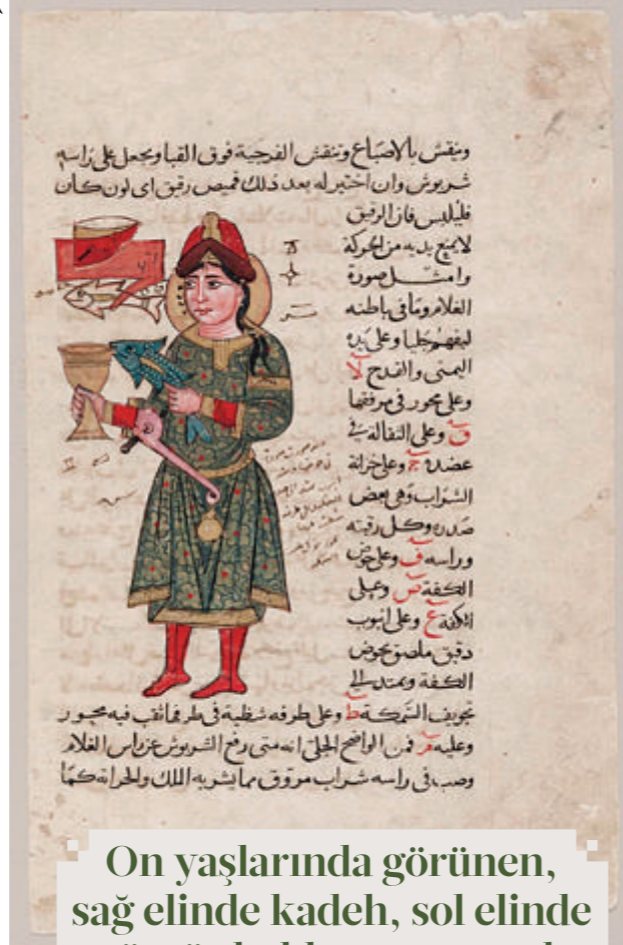 وينقش بالاصباغ وتنقش الفرجية فوق القبا ويجعل على راسه
شربوش وان اختير له بعد ذلك قميص رقيق اى لون كان
فليلبس فان الرقيق
لا يمنع يديه من الحركة
وامثل صورة
الغلام وما فى باطنه
ليفهم جليا وعلى يده
اليمنى والقدح لا
وعلى محور فى مرفقها
ق وعلى الثقالة فى
عضده ج وعلى خزانة
الشراب وهى بعض
صدره وكل رقبته
وراسه ف وعلى حوض
الكفة ص وعلى
الكفة ع وعلى انبوب
دقيق ملصق بحوض
الكفة ويمتد الى
تجويف السمكة ط وعلى طرفه شظية فى طرفها ثقب فيه محور
وعليه م فمن الواضح الجلى انه متى رفع الشربوش عن راس الغلام
وصب فى راسه شراب مروق مما يشربه الملك والخزانة كما
On yaşlarında görünen,
sağ elinde kadeh, sol elinde